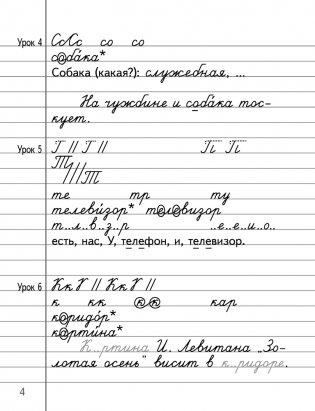 Урок 4 СоСс со со
собáка*
Собака (какая?): служебная, ...
На чужбине и собака тос-
кует.
Урок 5 Г || Г || П П
Т ||| Т
те тр ту
телевúзор* телевизор
т..л..в..з..р ..е..е..и..о..
есть, нас, У, телефон, и, телевизор.
Урок 6 КкК || КкК ||
к кк кк кар
коридóр*
картúна*
К..ртина И. Левитана „Зо-
лотая осень" висит в к..ридоре.
4